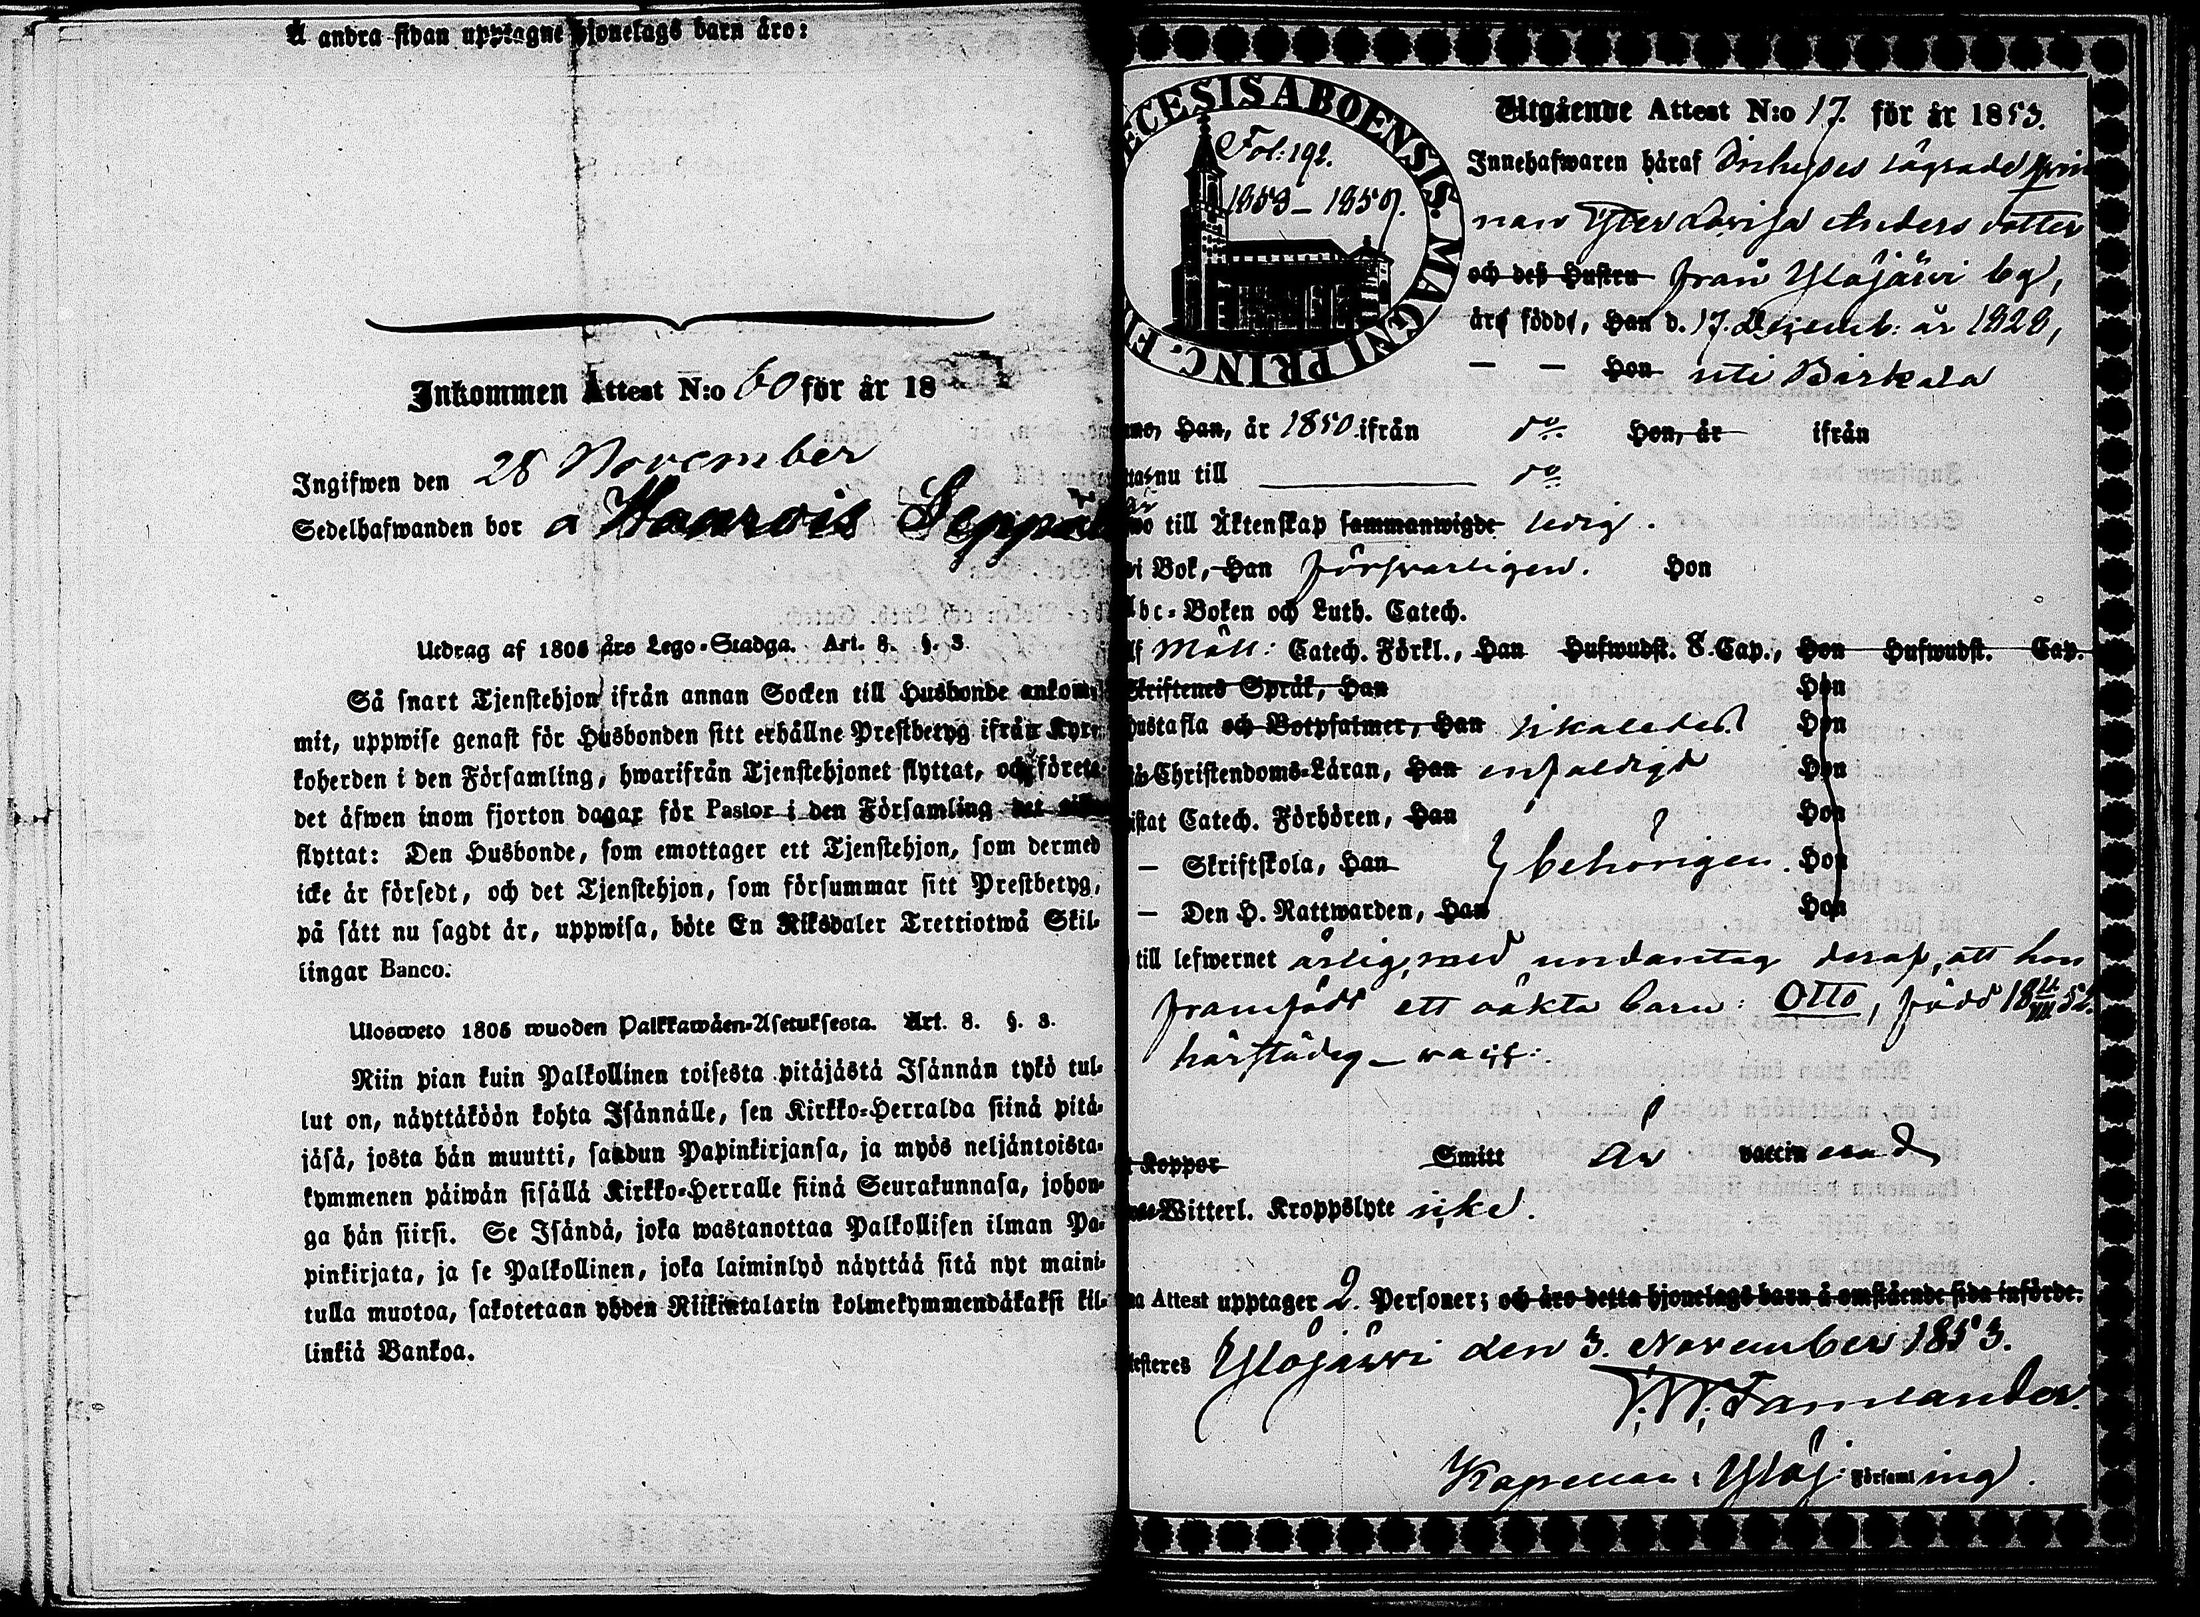 Å andra sidan upptagne hjonelags barn äro:
Inkommen Attest N:o 60 för år 18
Ingifwen den 28 November
Sedelhafwanden bor å Haarois Seppäl
Utdrag af 1805 års Lego-Stadga. Art. 8. §. 3.
Så snart Tjenstehjon ifrån annan Socken till Husbonde ankom-
mit, uppwise genast för Husbonden sitt erhållne Prestbetyg ifrån Kyr-
koherden i den Församling, hwarifrån Tjenstehjonet flyttat, och förete
det äfwen inom fjorton dagar för Pastor i den Församling det
flyttat: Den Husbonde, som emottager ett Tjenstehjon, som dermed
icke är försedt, och det Tjenstehjon, som försummar sitt Prestbetyg,
på sätt nu sagdt är, uppwisa, böte En Riksdaler Trettiotwå Skil-
lingar Banco.
Ulosweto 1805 wuoden Palkkawäen-Asetuksesta. Art. 8. §. 3.
Niin pian kuin Palkollinen toisesta pitäjästä Isännän tykö tul-
lut on, näyttäköön kohta Isännälle, sen Kirkko-Herralda siinä pitä-
jäsä, josta hän muutti, saadun Papinkirjansa, ja myös neljäntoista-
kymmenen päiwän sisällä Kirkko-Herralle siinä Seurakunnasa, johon-
ga hän siirsi. Se Isändä, joka wastanottaa Palkollisen ilman Pa-
pinkirjata, ja se Palkollinen, joka laiminlyö näyttää sitä nyt maini-
tulla muotoa, sakotetaan yhden Riikintalarin kolmekymmendäkaksi kil-
linkiä Bankoa.
ECESIS ABOENSIS. MAGNI PRINC. FI
Fol: 192.
1853-1859.
Utgående Attest N:o 17. för år 1853.
Innehafwaren häraf Inhyses lägrade qwin
nan Lovisa Anders dotter
och deß Hustru från Ylöjärvi by,
äro födde, Han d. 17. Decemb: år 1828,
— — Hon uti Birkala
Han, år 1850. ifrån do Hon, år ifrån
nu till do
till Äktenskap sammanwigde ledig.
i Bok, Han försvarligen. Hon
bc-Boken och Luth. Catech.
lf Möll: Catech. Förkl., Han Hufwudst. 8. Cap., Hon Hufwudst. Cap.
Skriftenes Språk, Han Hon
Hustafla och Botpsalmer, Han likaledes Hon
Christendoms-Läran, Han enfaldigt Hon
istat Catech. Förhören, Han Hon
— Skriftskola, Han behörigen. Hon
— Den H. Nattwarden, Han Hon
till lefwernet ärlig, med undantag deraf, att hon
framfödt ett oäkta barn: Otto, född
härstädes
Koppor Smitt är vaccinerad
Witterl. Kroppslyte icke.
na Attest upptager 2. Personer; och äro detta hjonelags barn å omstående sida införde.
testeres Ylöjärvi den 3. November 1853.
Kapellan i Ylöj: Församling.